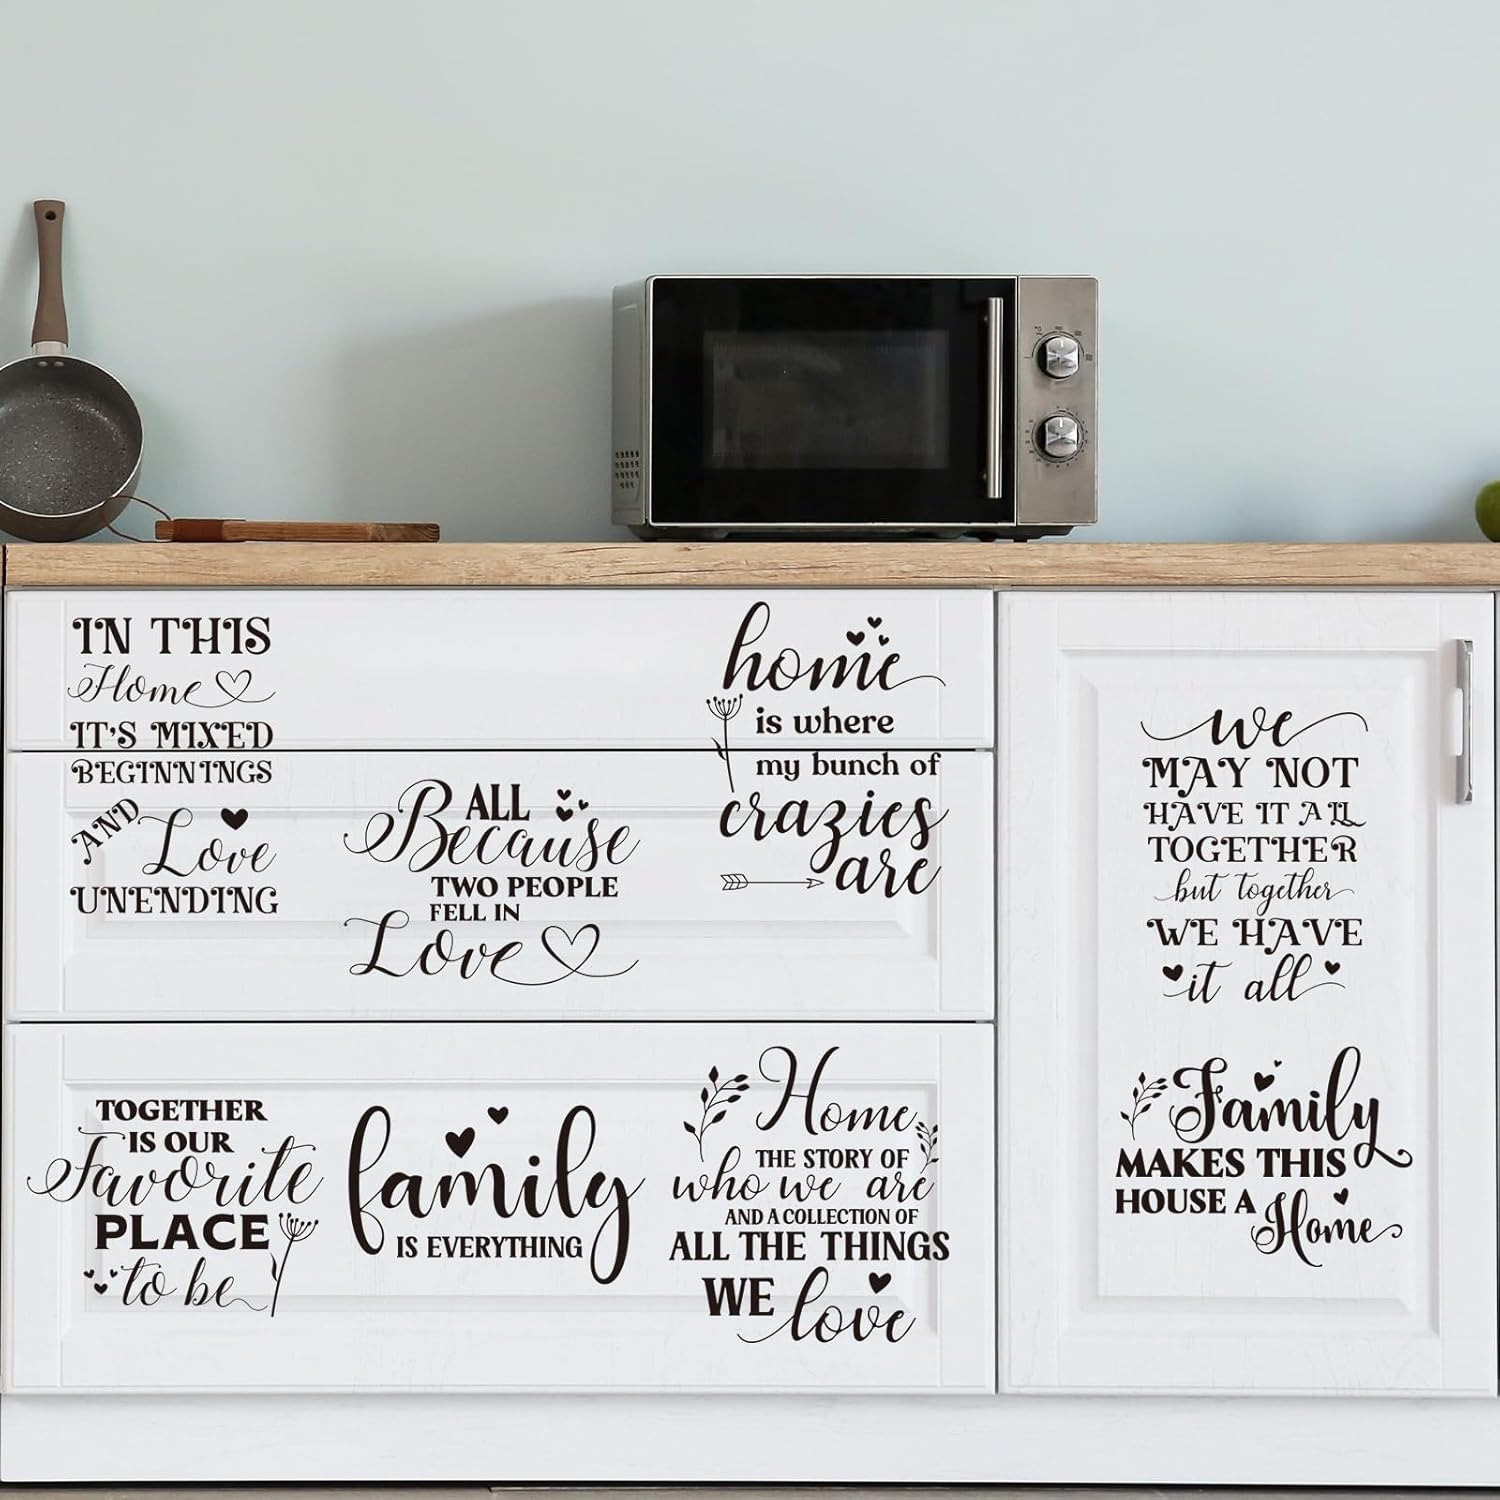 IN THIS
Home
IT'S MIXED
BEGINNINGS
AND
Love
UNENDING
ALL
Because
TWO PEOPLE
FELL IN
Love
home
is where
my bunch of
crazies
are
we
MAY NOT
HAVE IT ALL
TOGETHER
but together
WE HAVE
it all
TOGETHER
IS OUR
Favorite
PLACE
to be
family
IS EVERYTHING
Home
THE STORY OF
who we are
AND A COLLECTION OF
ALL THE THINGS
WE love
Family
MAKES THIS
HOUSE A
Home